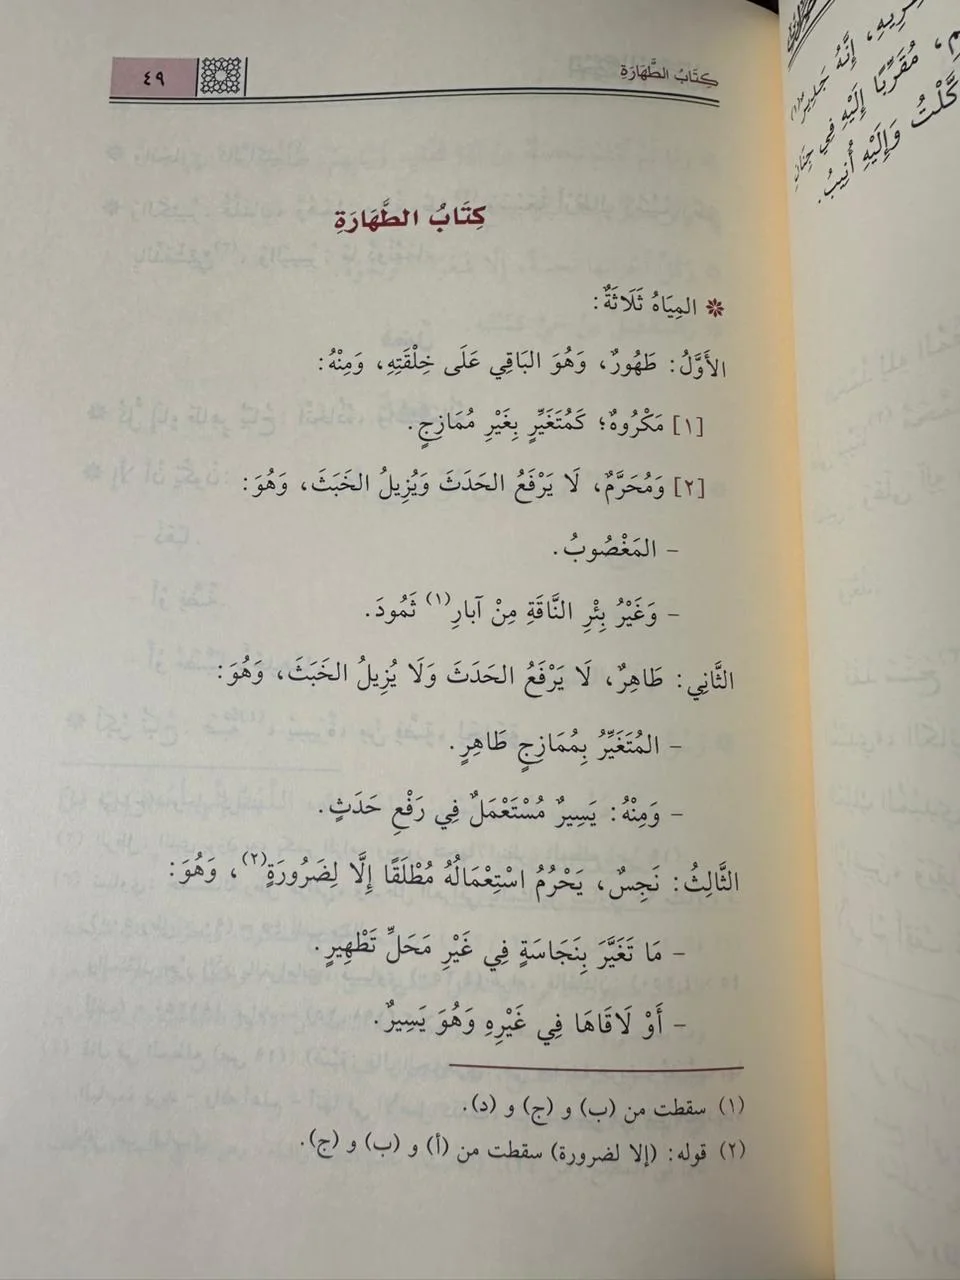 كِتَابُ الطَّهَارَةِ
٤٩
كِتَابُ الطَّهَارَةِ
المِيَاهُ ثَلَاثَةٌ:
الأَوَّلُ: طَهُورٌ، وَهُوَ البَاقِي عَلَى خِلْقَتِهِ، وَمِنْهُ:
[١] مَكْرُوهٌ؛ كَمُتَغَيِّرٍ بِغَيْرِ مُمَازِجٍ.
[٢] وَمُحَرَّمٌ، لَا يَرْفَعُ الحَدَثَ وَيُزِيلُ الخَبَثَ، وَهُوَ:
- المَغْصُوبُ.
- وَغَيْرُ بِئْرِ النَّاقَةِ مِنْ آبارِ(١) ثَمُودَ.
الثَّانِي: طَاهِرٌ، لَا يَرْفَعُ الحَدَثَ وَلَا يُزِيلُ الخَبَثَ، وَهُوَ:
- المُتَغَيِّرُ بِمُمَازِجٍ طَاهِرٍ.
- وَمِنْهُ: يَسِيرٌ مُسْتَعْمَلٌ فِي رَفْعِ حَدَثٍ.
الثَّالِثُ: نَجِسٌ، يَحْرُمُ اسْتِعْمَالُهُ مُطْلَقًا إِلَّا لِضَرُورَةٍ(٢)، وَهُوَ:
- مَا تَغَيَّرَ بِنَجَاسَةٍ فِي غَيْرِ مَحَلِّ تَطْهِيرٍ.
- أَوْ لَاقَاهَا فِي غَيْرِهِ وَهُوَ يَسِيرٌ.
(١) سقطت من (ب) و (ج) و (د).
(٢) قوله: (إلا لضرورة) سقطت من (أ) و (ب) و (ج).
إِنَّهُ جَدِيرٌ(١)
مُقَرِّبًا إِلَيْهِ فِي جِنَانِ
وَإِلَيْهِ أُنِيبُ.